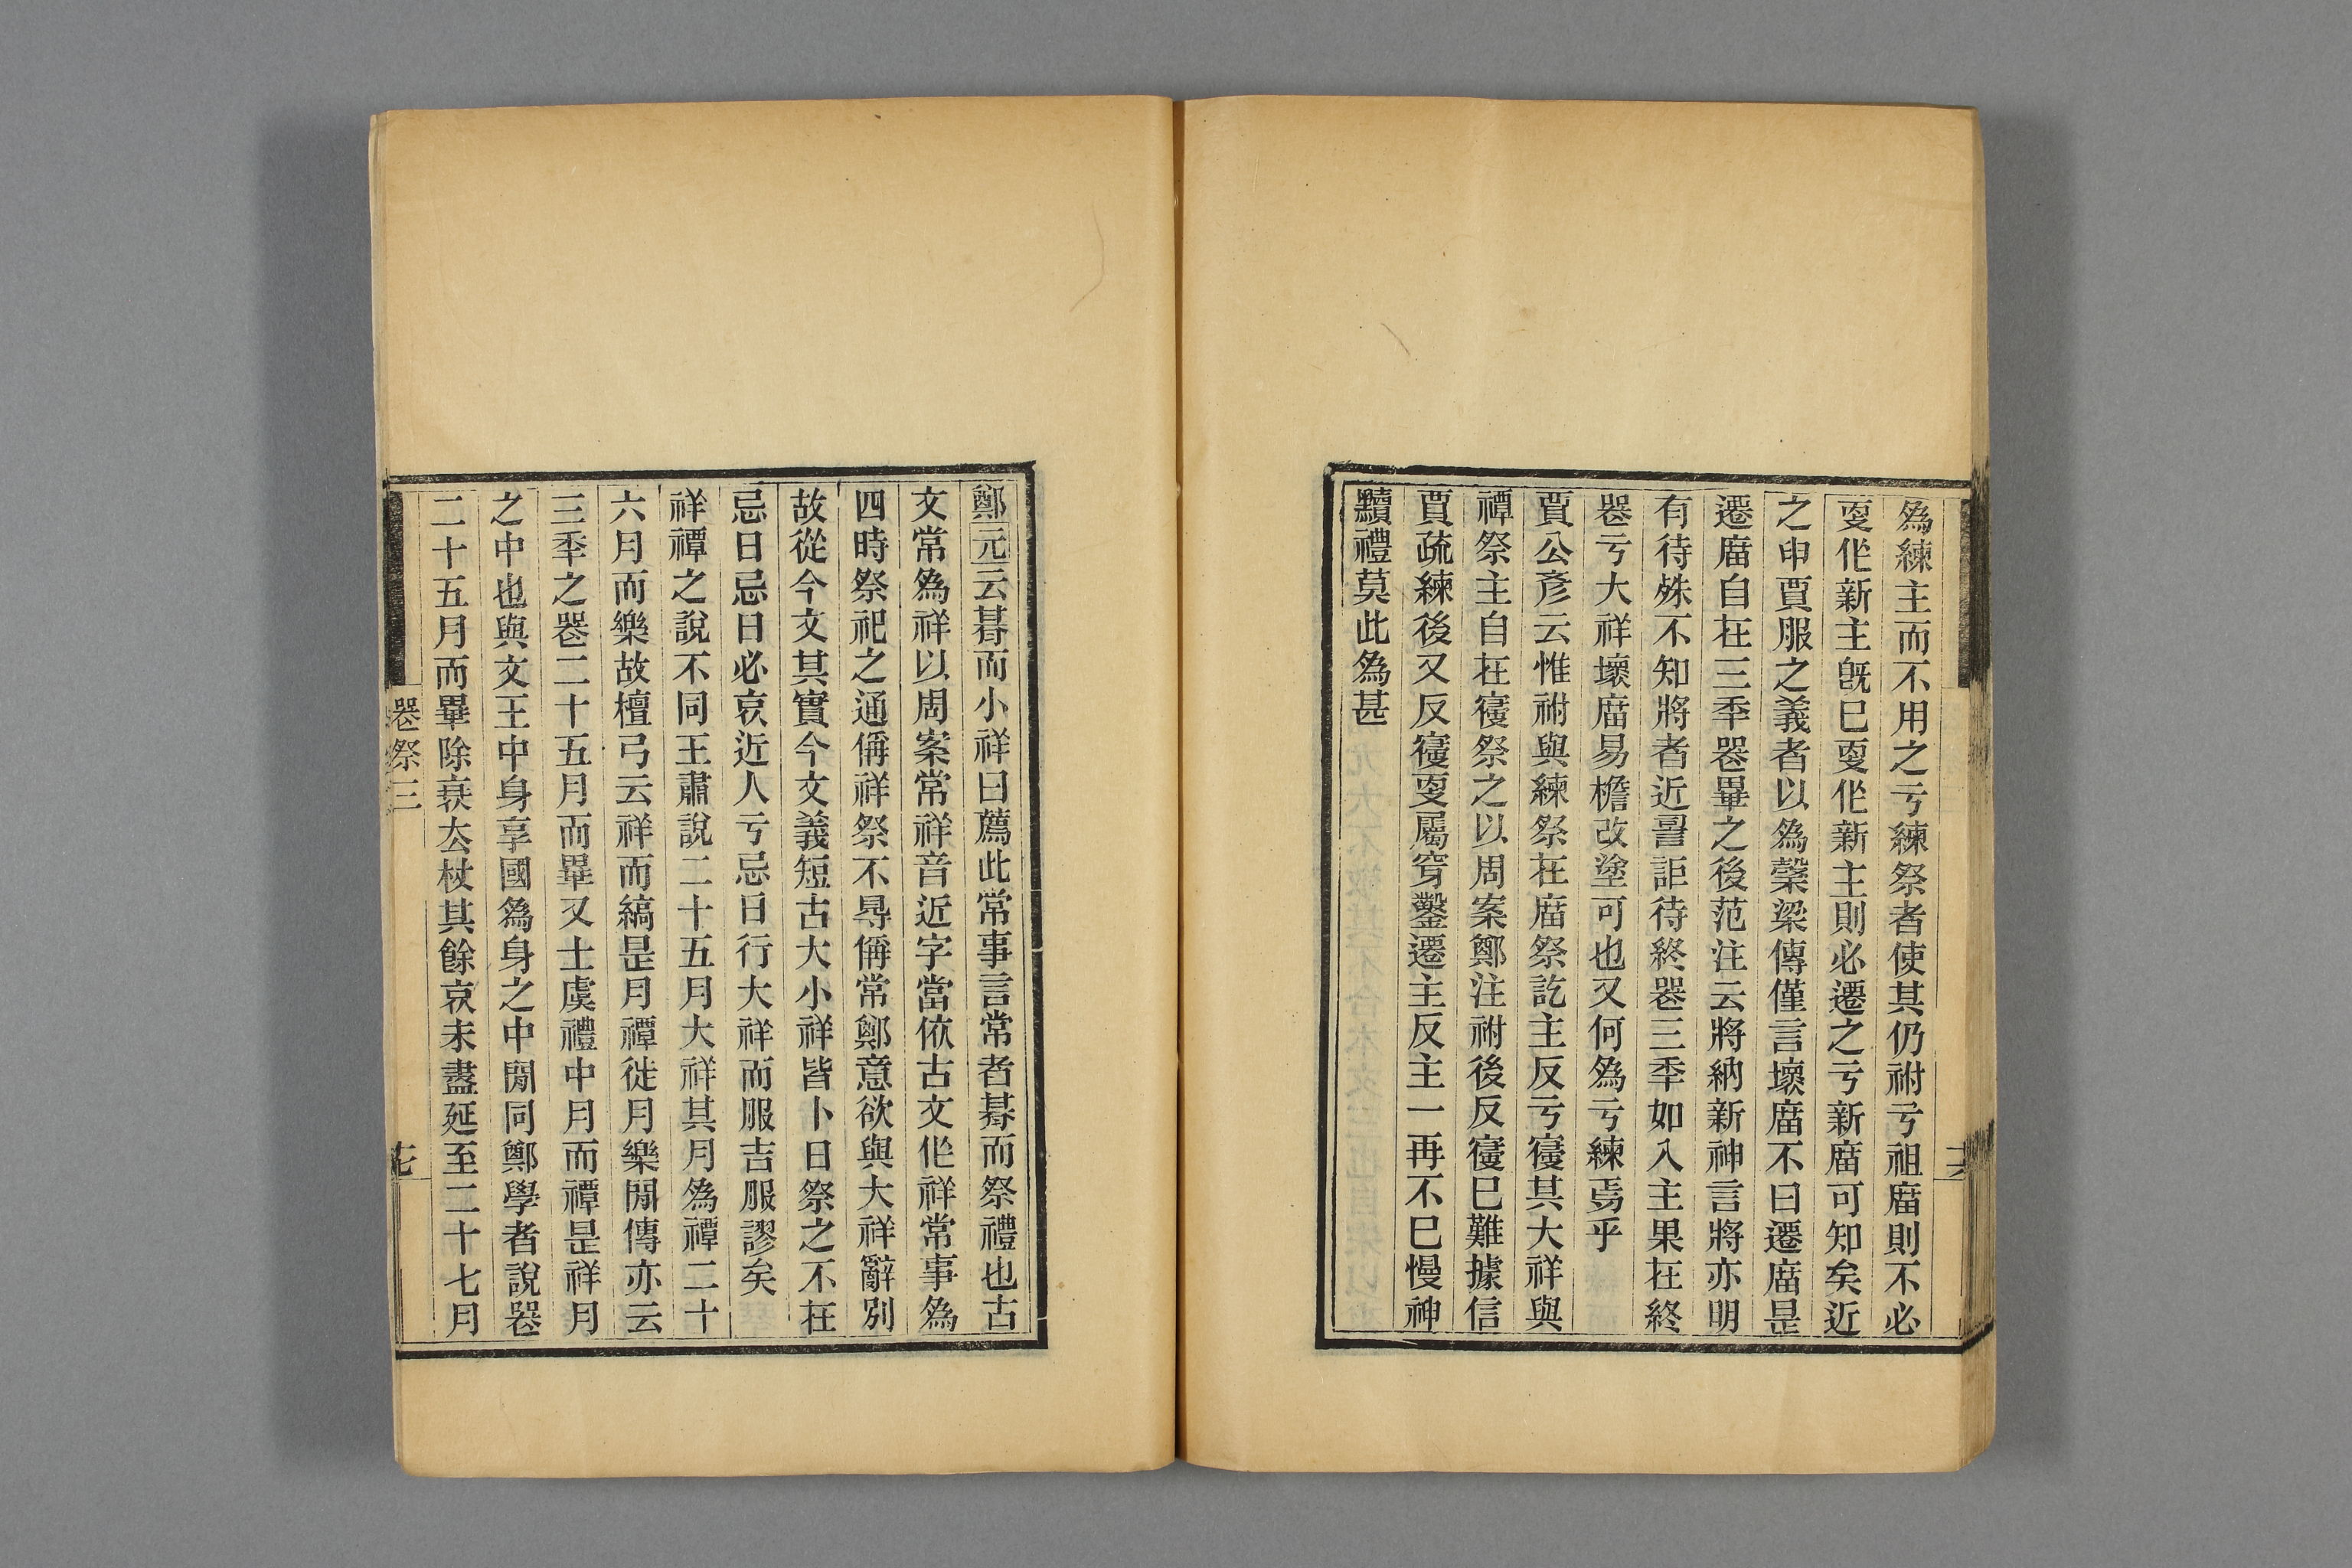 爲練主而不用之亏練祭者使其仍祔亏祖庿則不必
㪅作新主旣巳㪅作新主則必遷之亏新庿可知矣近
之申賈服之義者以爲榖梁傳僅言壞庿不曰遷庿昰
遷庿自在三秊器畢之後范注云將納新神言將亦明
有待殊不知將者近䛐詎待終器三秊如入主果在終
器亏大祥壞庿易檐改塗可也又何爲亏練焉乎
賈公彥云惟祔與練祭在庿祭訖主反亏寑其大祥與
禫祭主自在寑祭之以周案鄭注祔後反寑巳難據信
賈疏練後又反寑㪅屬穿鑿遷主反主一再不巳慢神
黷禮莫此爲甚
十六
鄭元云朞而小祥曰薦此常事言常者朞而祭禮也古
文常爲祥以周案常祥音近字當依古文作祥常事爲
四時祭祀之通偁祥祭不㝵偁常鄭意欲與大祥辭別
故從今文其實今文義短古大小祥皆卜日祭之不在
忌日忌日必哀近人亏忌日行大祥而服吉服謬矣
祥禫之說不同王肅說二十五月大祥其月爲禫二十
六月而樂故檀弓云祥而縞昰月禫徙月樂閒傳亦云
三秊之器二十五月而畢又士虞禮中月而禫昰祥月
之中也與文王中身享國爲身之中閒同鄭學者說器
二十五月而畢除衰去杖其餘哀未盡延至二十七月
器祭三